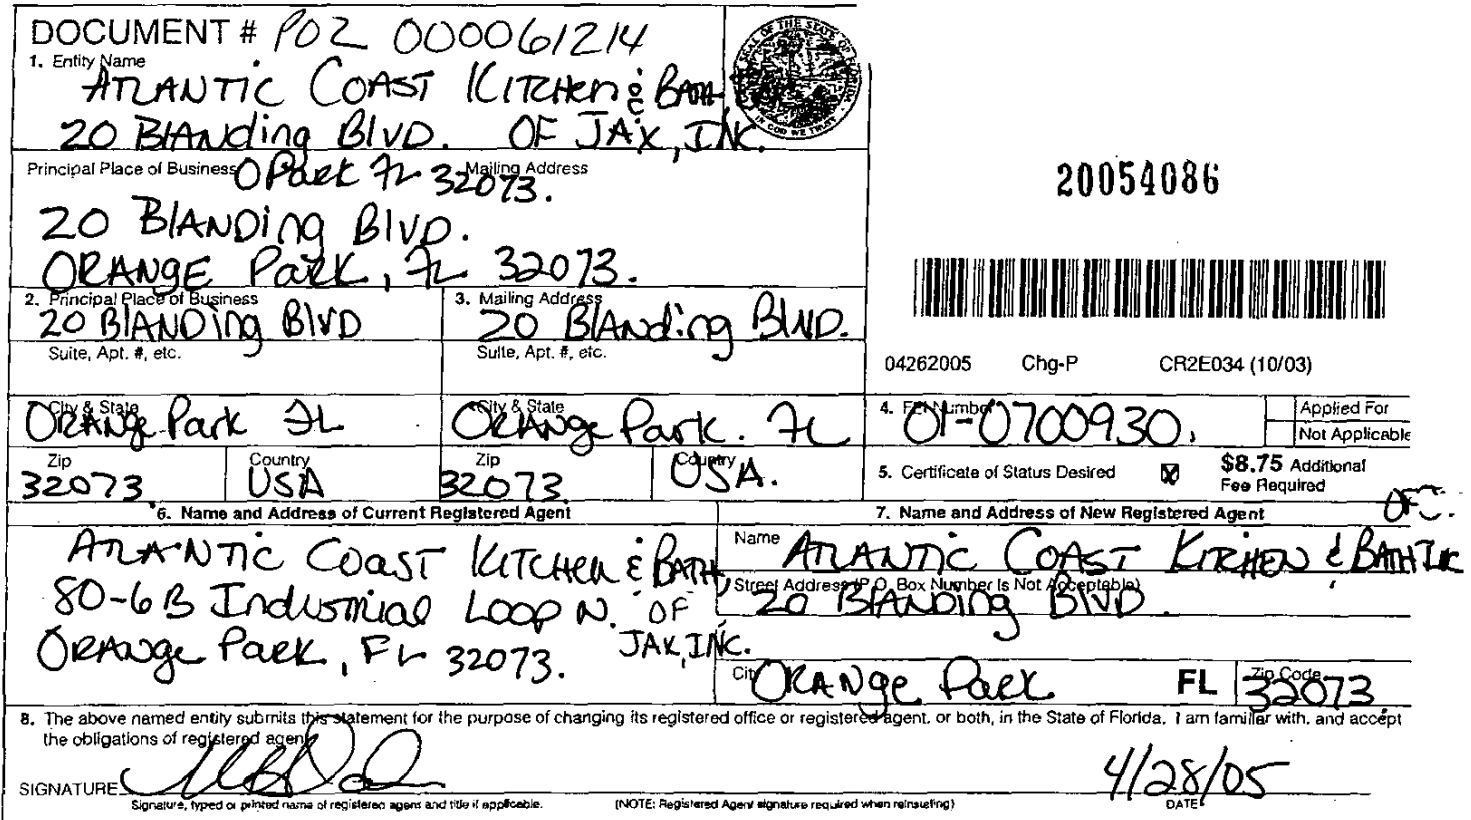 DOCUMENT # P02 000061214
1. Entity Name
ATLANTIC COAST KITCHEN & BATH
20 BLANDING BLVD. OF JAX, INC.
Principal Place of Business O Park FL 32073. Mailing Address
20 BLANDING BLVD.
ORANGE PARK, FL 32073.
2. Principal Place of Business 3. Mailing Address
20 BLANDING BLVD 20 BLANDING BLVD.
Suite, Apt. #, etc. Suite, Apt. #, etc.
City & State City & State
ORANGE Park FL ORANGE Park. FL
Zip Country Zip Country
32073 USA 32073 USA.
20054086
04262005 Chg-P CR2E034 (10/03)
4. FEI Number 01-0700930. Applied For
Not Applicable
5. Certificate of Status Desired ☒ $8.75 Additional
Fee Required
6. Name and Address of Current Registered Agent
ATLANTIC COAST KITCHEN & BATH,
80-6B Industrial Loop N. OF
JAX, INC.
ORANGE PARK, FL 32073.
7. Name and Address of New Registered Agent
Name ATLANTIC COAST KITCHEN & BATH INC
Street Address (P.O. Box Number Is Not Acceptable)
20 BLANDING BLVD.
City ORANGE PARK FL Zip Code 32073
8. The above named entity submits this statement for the purpose of changing its registered office or registered agent, or both, in the State of Florida. I am familiar with, and accept
the obligations of registered agent.
SIGNATURE 4/28/05
Signature, typed or printed name of registered agent and title if applicable. (NOTE: Registered Agent signature required when reinstating) DATE